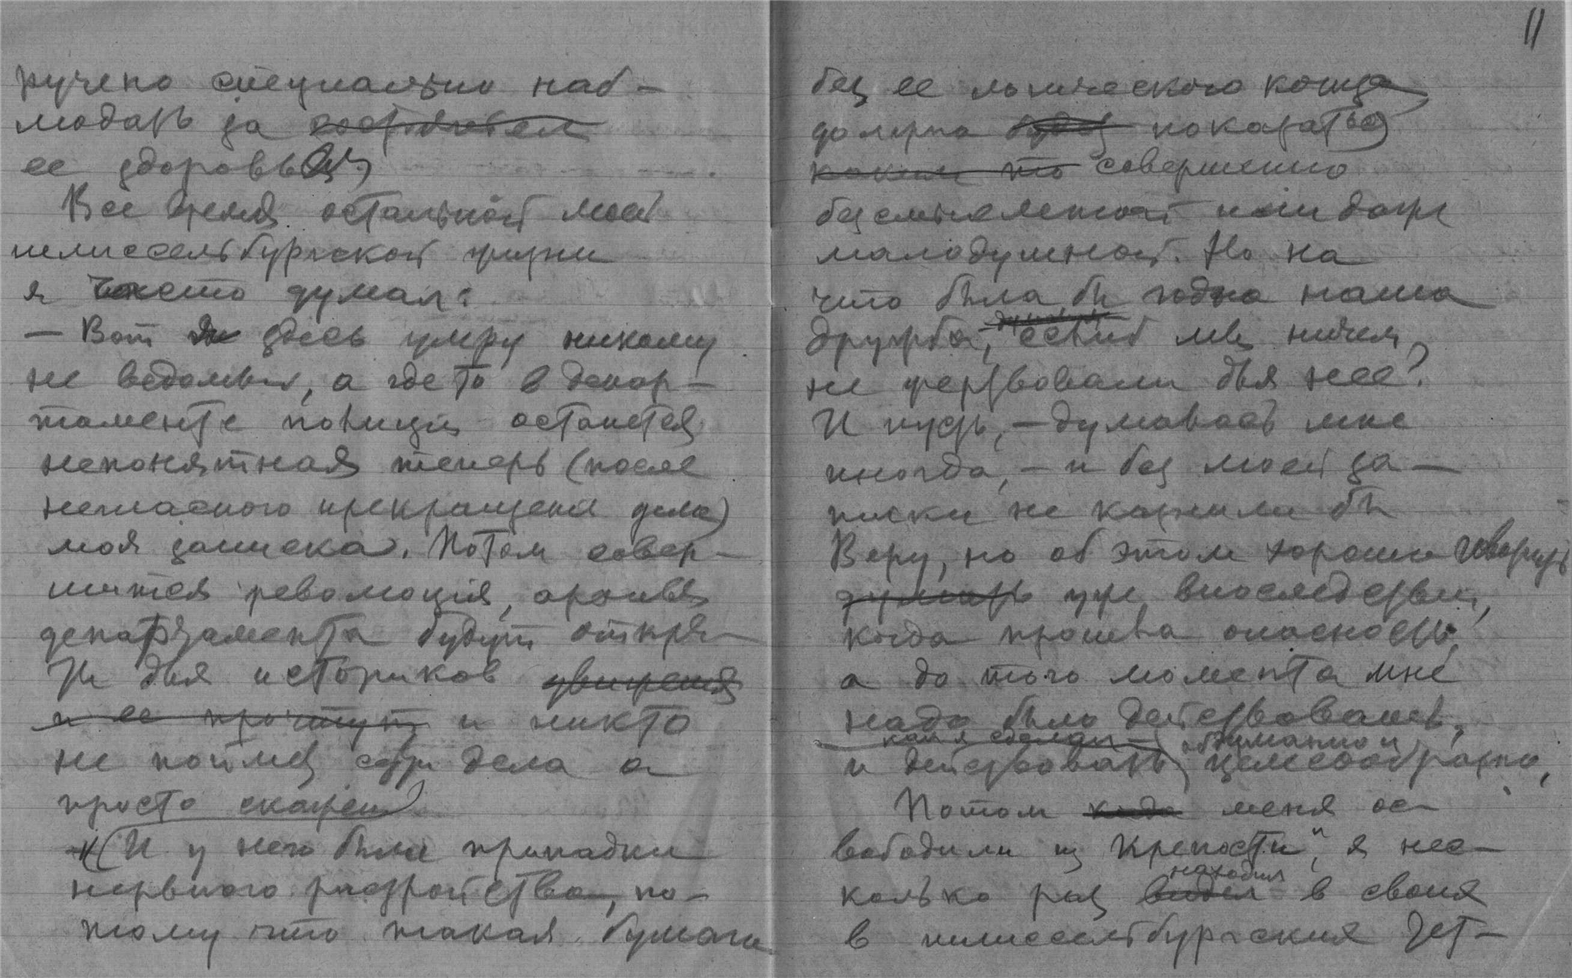 ручено специально наб-
людать за
ее здоровьем)
Все время остальной моей
шлиссельбургской жизни
я часто думал:
— Вот я здесь умру никому
не ведомый, а где то в депар-
таменте полиции останется
непонятная теперь (после
негласного прекращения дела)
моя записка. Потом совер-
шится революция, архивы
департамента будут откры-
ты для историков движения
и ее прочтут и никто
не поймет сути дела а
просто скажет
(И у него были припадки
нервного расстройства, по-
тому что такая бумага
11
без ее логического конца
должна показаться
каким то совершенно
безсмысленной или даже
малодушной. Но на
что была бы годна наша
дружба, если б мы ничем
не жертвовали для нее?
И пусть, — думалось мне
иногда, — и без моей за-
писки не казнили бы
Веру, но об этом хорошо говорить
думать уж впоследствии,
когда прошла опасность,
а до того момента мне
надо было действовать,
как я сделал — обдуманно и
и действовать целесообразно,
Потом меня ос-
вободили из Крепости", я нес-
находил
колько раз видел в своих
в шлиссельбургских тет-